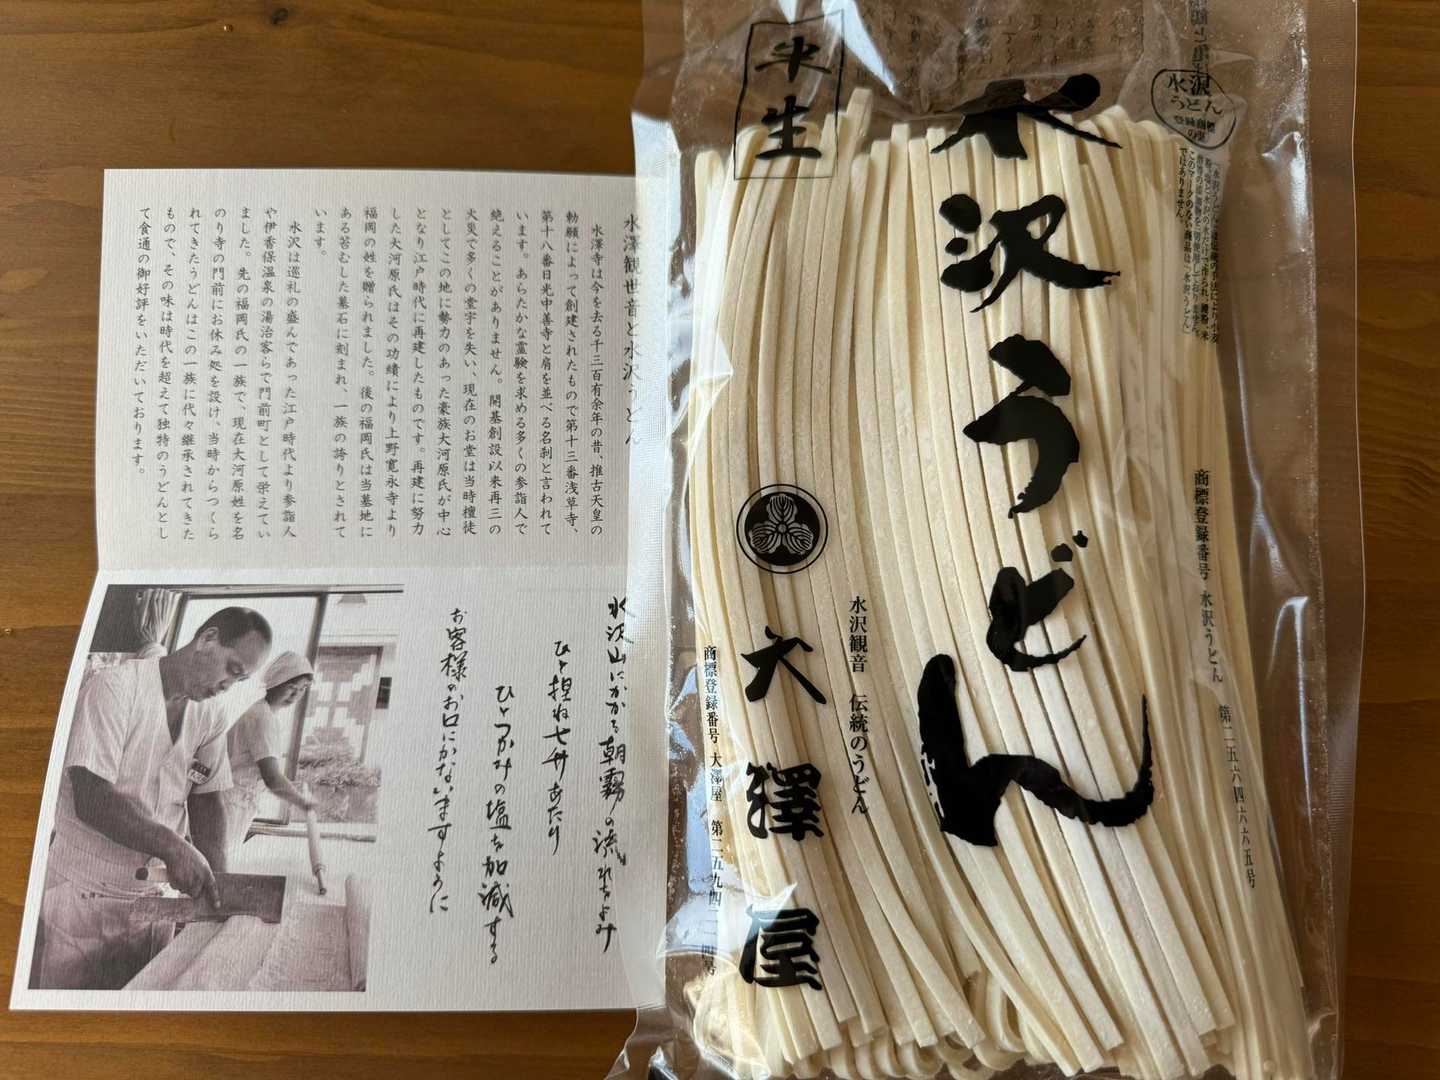 水澤観世音と水沢うどん
水澤寺は今を去る千三百有余年の昔、推古天皇の
勅願によって創建されたもので第十三番浅草寺、
第十八番日光中善寺と肩を並べる名刹と言われて
います。あらたかな霊験を求める多くの参詣人で
絶えることがありません。開基創設以来再三の
火災で多くの堂宇を失い、現在のお堂は当時檀徒
としてこの地に勢力のあった豪族大河原氏が中心
となり江戸時代に再建したものです。再建に努力
した大河原氏はその功績により上野寛永寺より
福岡の姓を贈られました。後の福岡氏は当墓地に
ある苔むした墓石に刻まれ、一族の誇りとされて
います。
水沢は巡礼の盛んであった江戸時代より参詣人
や伊香保温泉の湯治客らで門前町として栄えてい
ました。先の福岡氏の一族で、現在大河原姓を名
のり寺の門前にお休み処を設け、当時からつくら
れてきたうどんはこの一族に代々継承されてきた
もので、その味は時代を超えて独特のうどんとし
て食通の御好評をいただいております。
水沢山にかかる朝霧の流れをよみ
ひと捏ね七舛あたり
ひとつかみの塩を加減する
お客様のお口にかないますように
水沢
うどん
登録商標
の証
「水沢うどん」は伝統の手法により小麦
粉、塩と水沢の水だけで作られ、
このマークのない商品は「水沢うどん」
ではありません。
商標登録番号 水沢うどん 第二五六四六六五号
水沢うどん
半生
水沢観音 伝統のうどん
大澤屋
商標登録番号 大澤屋